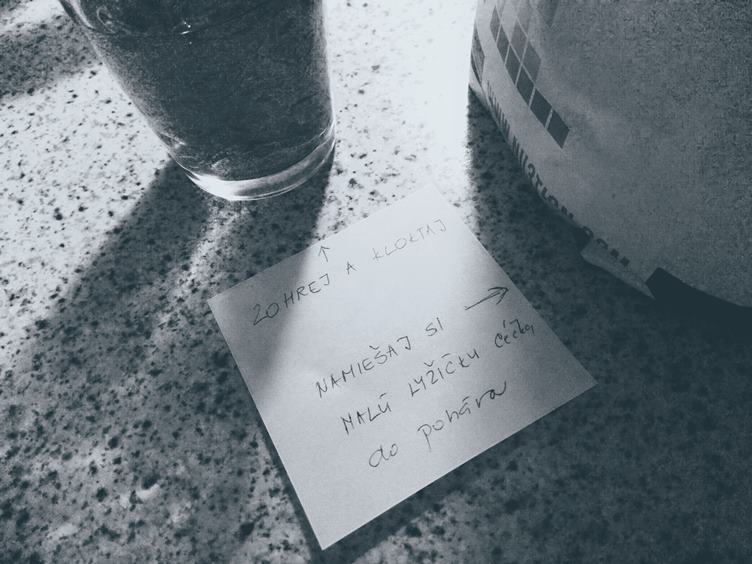 ZOHREJ A KLOKTAJ
NAMIEŠAJ SI
MALÚ LYŽIČKU céčka
do pohára